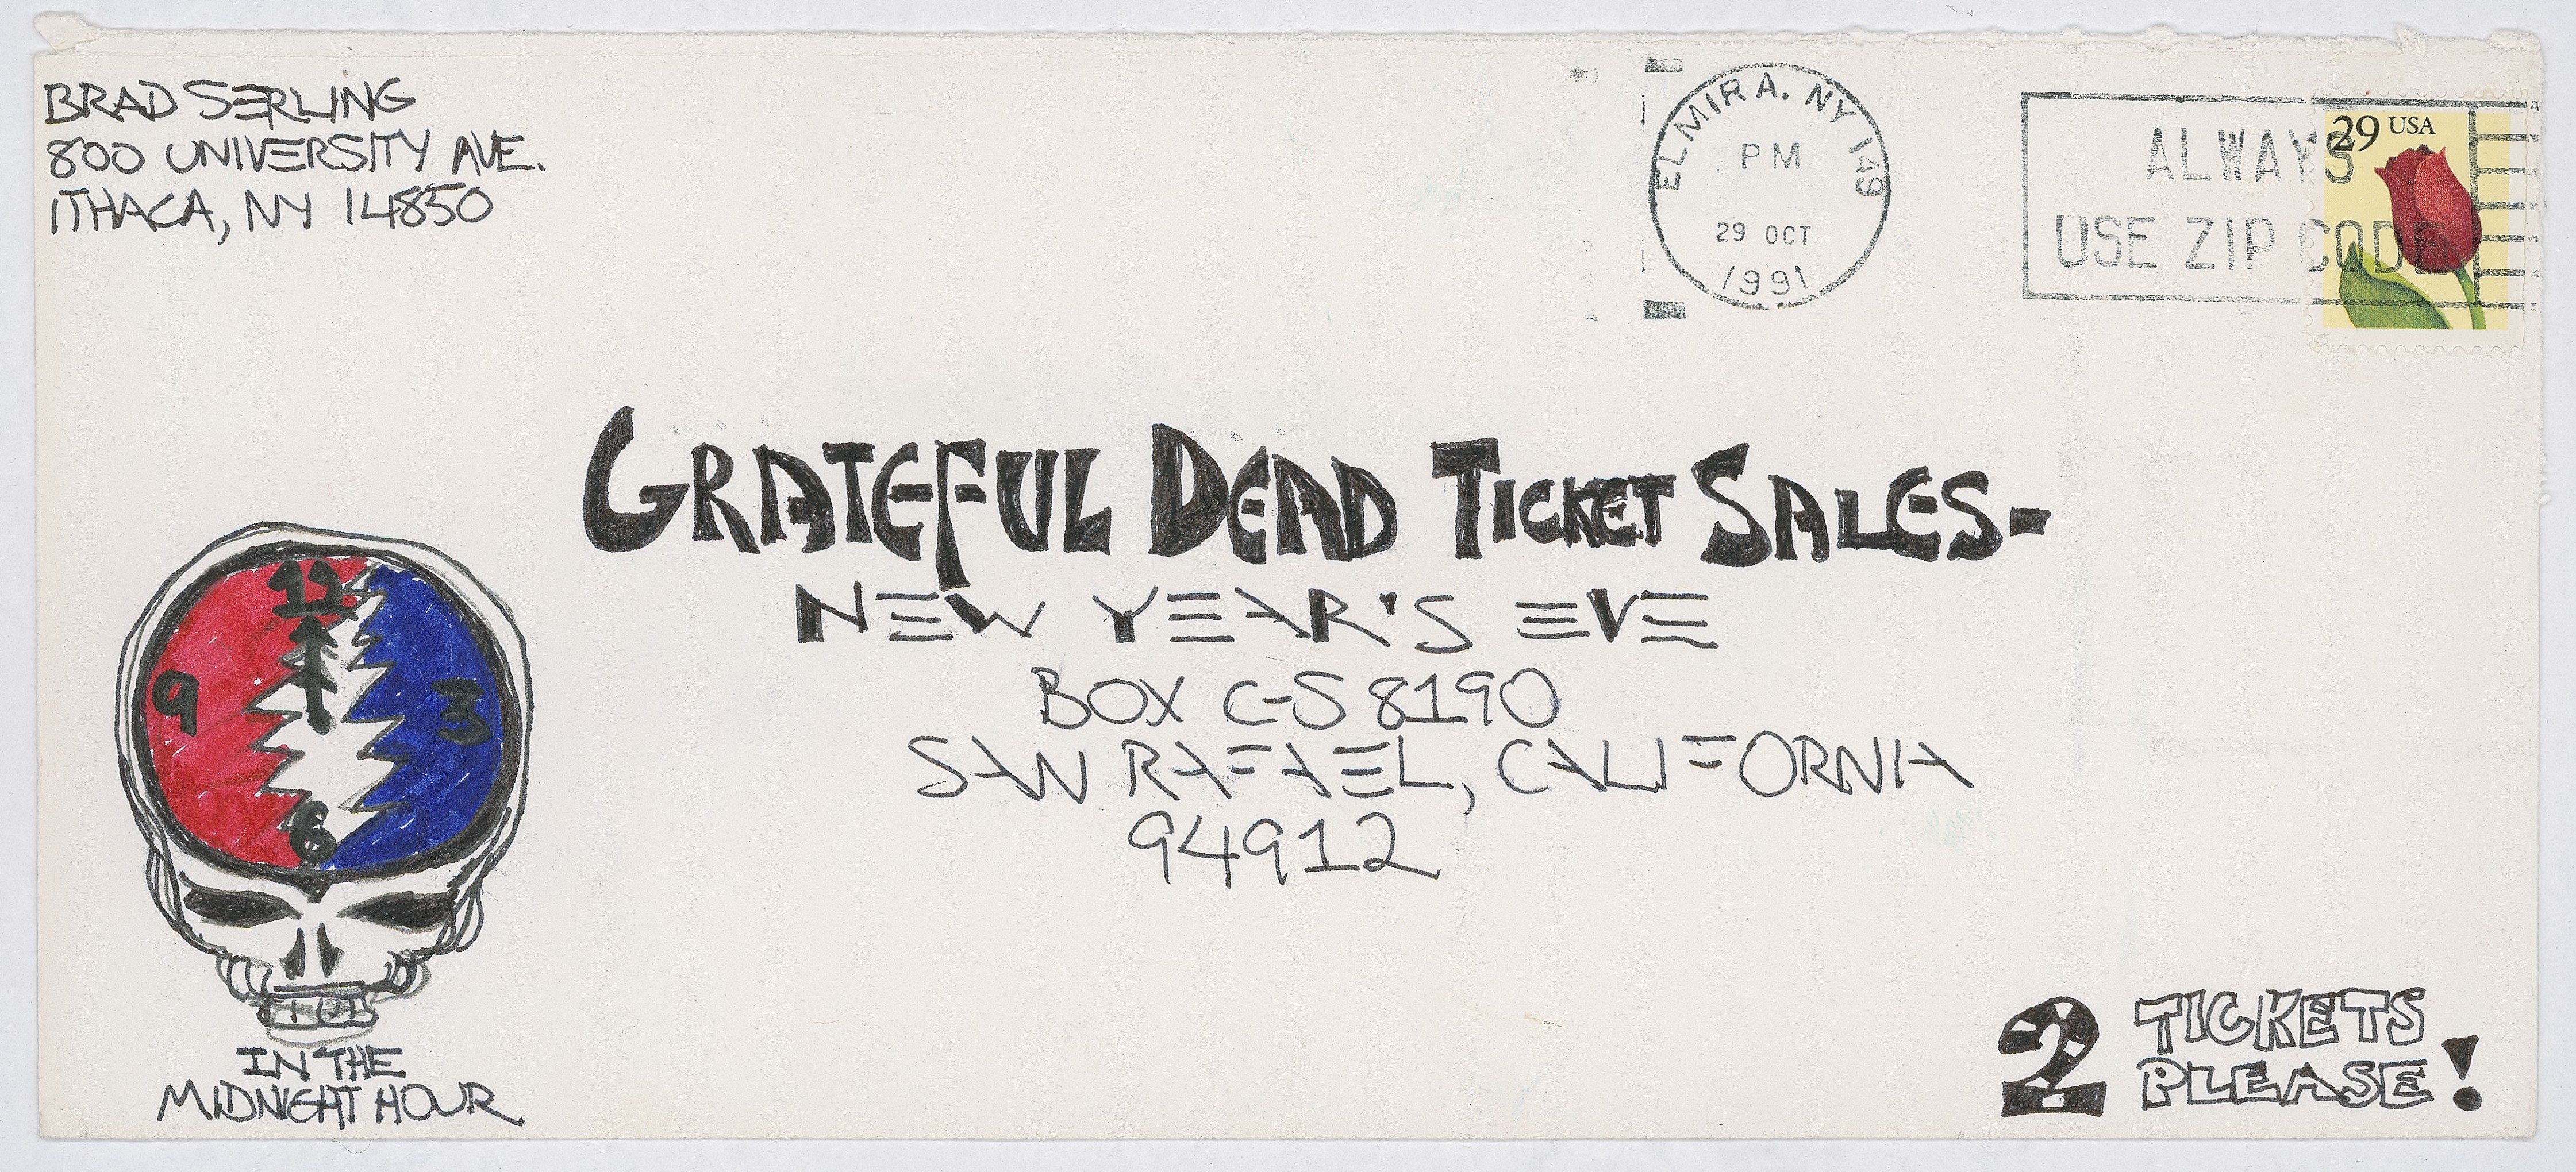 BRAD SERLING
800 UNIVERSITY AVE.
ITHACA, NY 14850
ELMIRA, NY 149
PM
29 OCT
1991
ALWAYS
USE ZIP CODE
29 USA
GRATEFUL DEAD TICKET SALES-
NEW YEAR'S EVE
BOX C-S 8190
SAN RAFAEL, CALIFORNIA
94912
12
9
3
6
IN THE
MIDNIGHT HOUR
2 TICKETS
PLEASE!